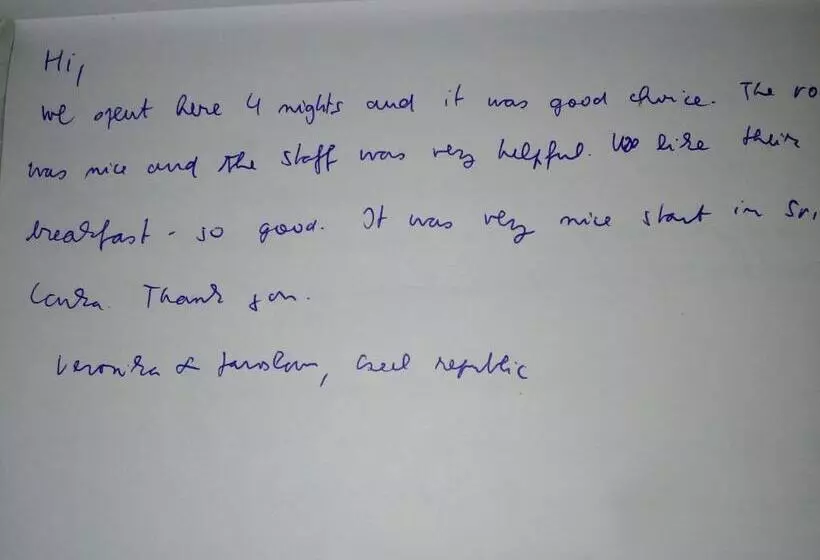 Hi,
we spent here 4 nights and it was good choice. The ro
was nice and the staff was very helpful. We like their
breakfast - so good. It was very nice start in Sri
Lanka. Thank you.
Veronika & Jaroslav, Czech republic